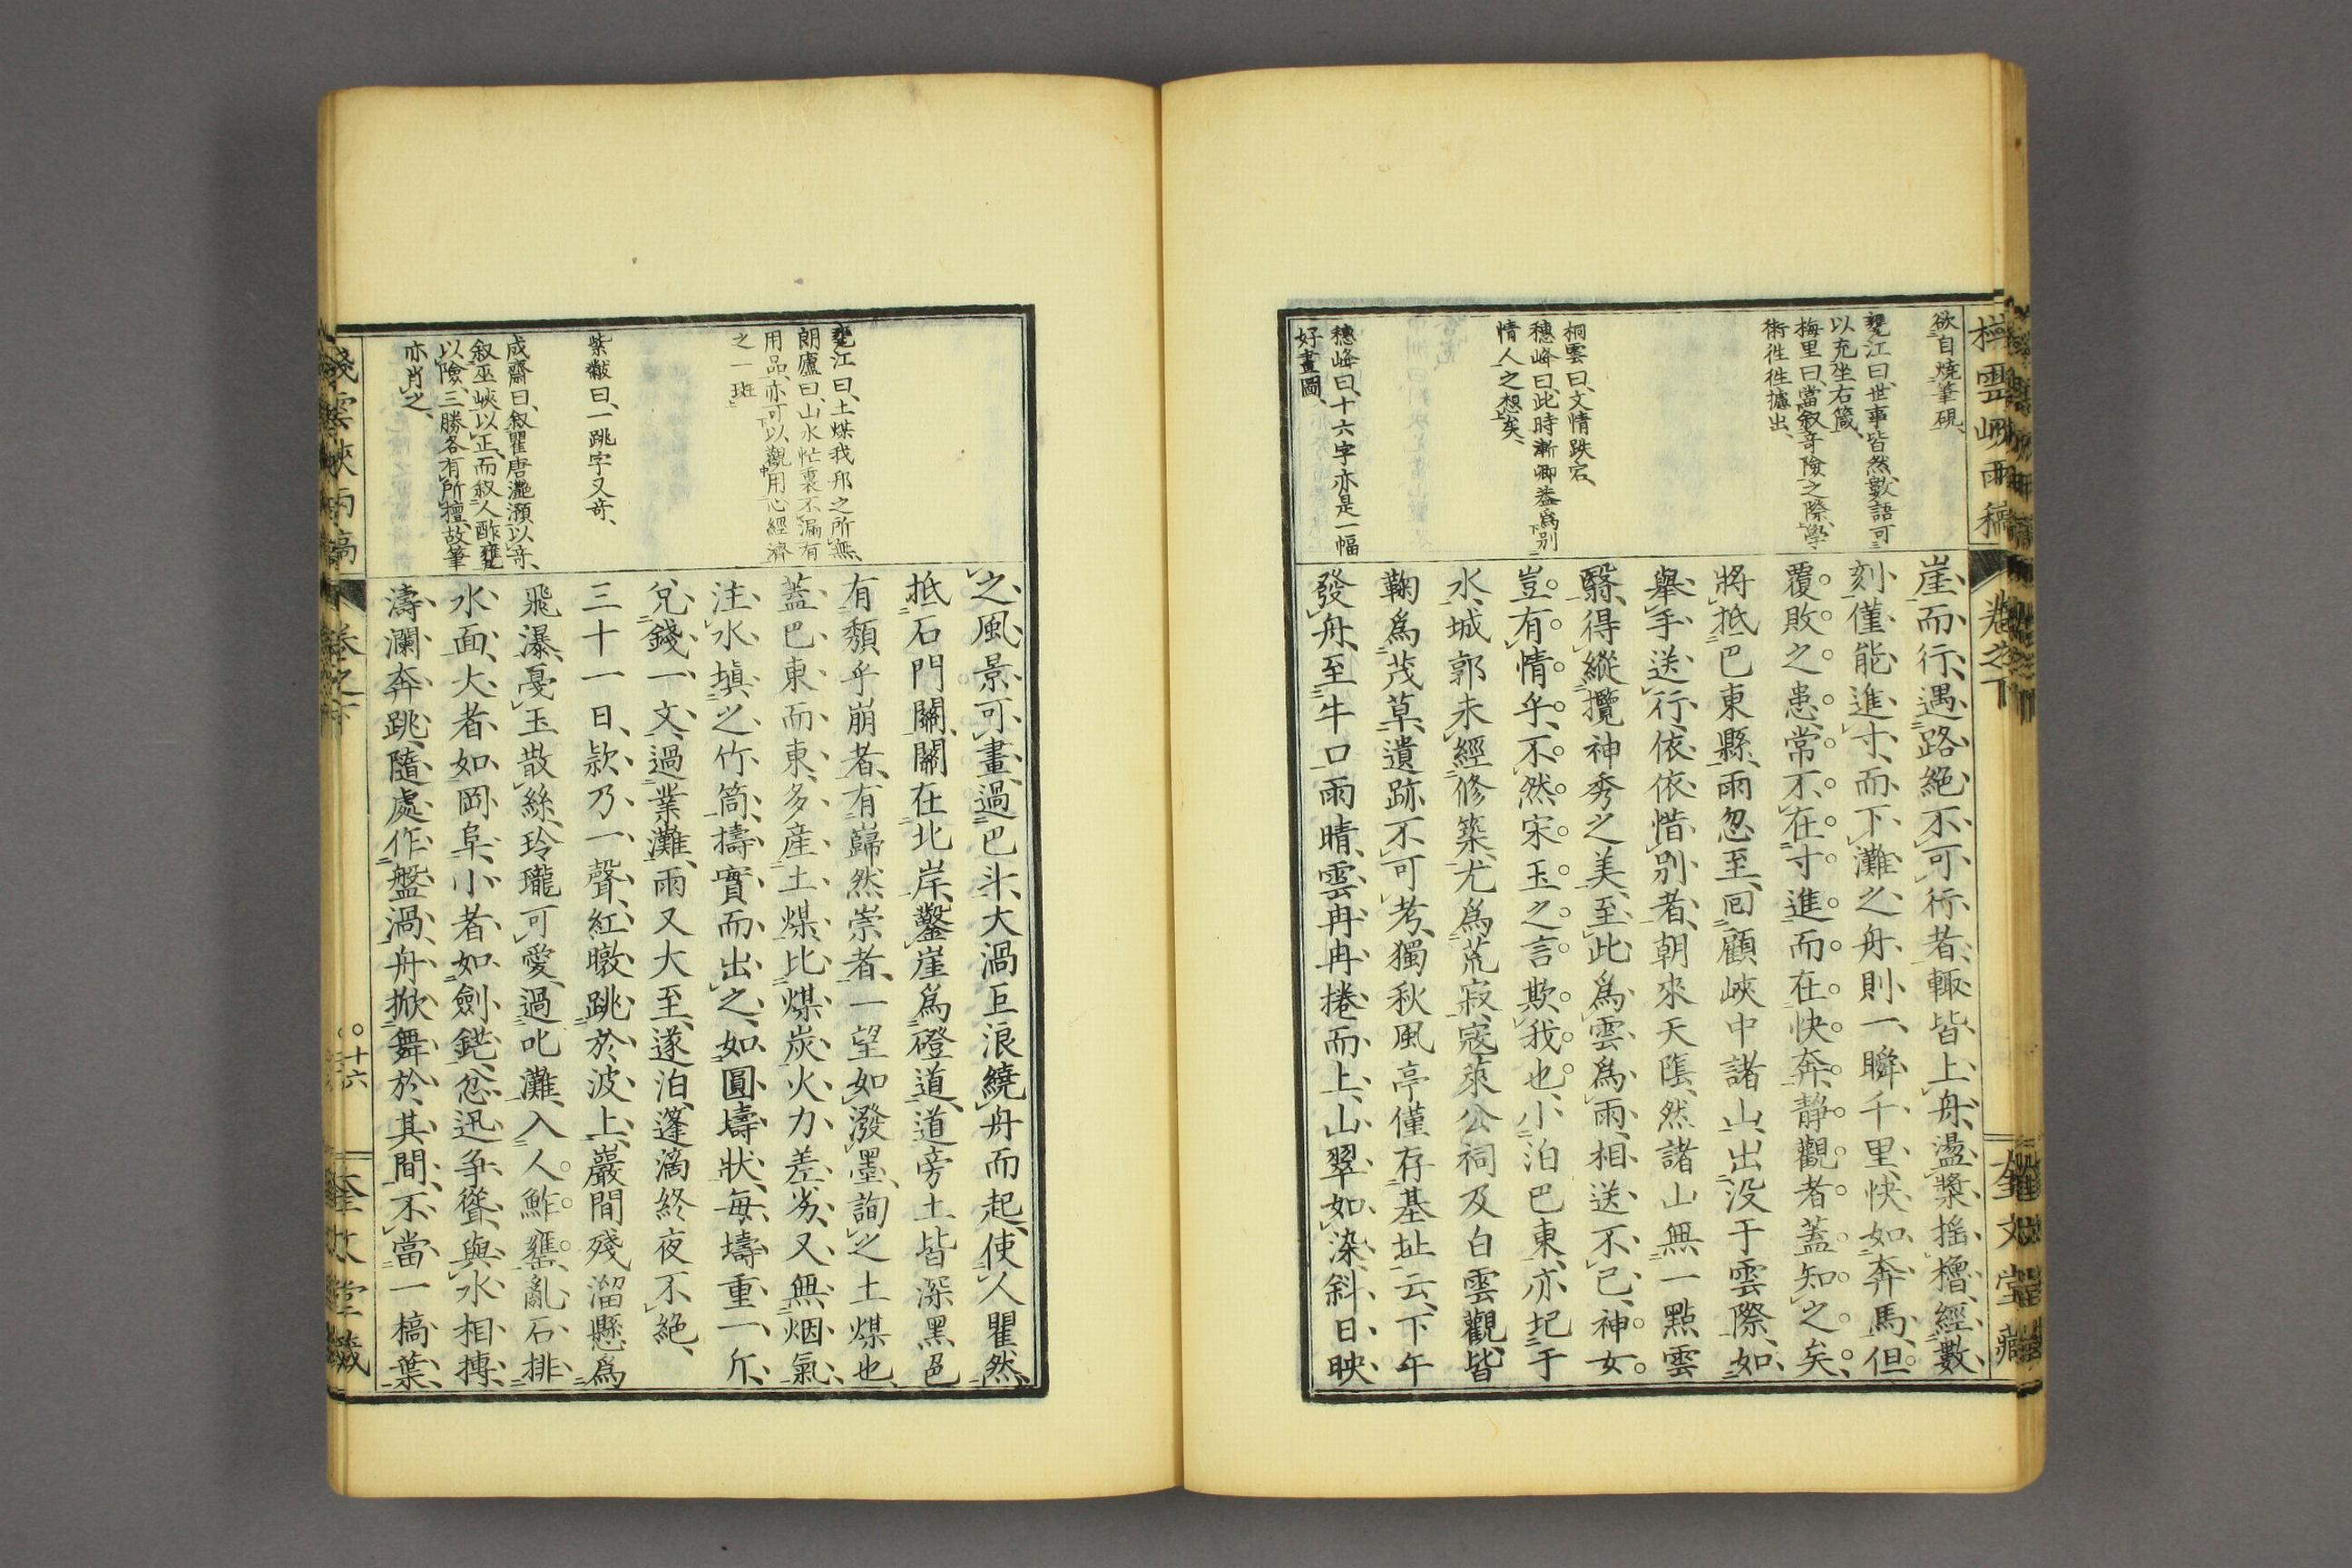 棧雲峽雨稿
卷之下
奎文堂藏
欲自燒筆硯、
甕江曰、世事皆然、數語可
以充坐右箴、
梅里曰、當敘奇險之際、學
術徃徃攄出、
桐雲曰、文情跌宕、
穗峰曰、此時漸卿蓋爲別
情人之想矣、
穗峰曰、十六字亦是一幅
好畫圖、
崖而行、遇路絕不可行者、輙皆上舟、盪槳搖櫓、經數
刻僅能進寸、而下灘之舟則一瞬千里、快如奔馬、但
覆敗之患、常不在寸進而在快奔、靜觀者蓋知之矣、
將抵巴東縣、雨忽至、回顧峽中諸山、出没于雲際、如
舉手送行、依依惜別者、朝來天陰、然諸山無一點雲
翳、得縱攬神秀之美、至此爲雲爲雨、相送不已、神女
豈有情乎、不然宋玉之言欺我也、小泊巴東、亦圯于
水、城郭未經修築、尤爲荒寂、寇萊公祠及白雲觀、皆
鞠爲茂草、遺跡不可考、獨秋風亭僅存基址云、下午
發舟、至牛口雨晴、雲冉冉捲而上、山翠如染、斜日映
甕江曰、土煤我邦之所無、
朗廬曰、山水忙裏不漏有
用品、亦可以觀用心經濟
之一斑
柴黻曰、一跳字又奇、
成齋曰、敘瞿唐灧澦以奇、
敘巫峽以正、而敘人酢甕
以險、三勝各有所擅、故筆
亦肖之、
之、風景可畫、過巴斗、大渦巨浪、繞舟而起、使人瞿然、
抵石門關、關在北岸、鑿崖爲磴道、道旁土皆深黑色
有頽乎崩者、有巋然崇者、一望如潑墨、詢之土煤也、
蓋巴東而東、多產土煤、比煤炭火力差劣、又無烟氣、
注水塡之竹筒、擣實而出之、如圓壔狀、每壔重一斤、
兌錢一文、過業灘、雨又大至、遂泊、蓬滴終夜不絕、
三十一日、欵乃一聲、紅暾跳於波上、巖間殘溜懸爲
飛瀑、戛玉散絲、玲瓏可愛、過叱灘、入人鮓甕、亂石排
水面、大者如岡阜、小者如劍鋩、忿迅爭聳、與水相摶、
濤瀾奔跳、隨處作盤渦、舟掀舞於其間、不當一槁葉、
棧雲峽雨稿
卷之下
十六
奎文堂藏